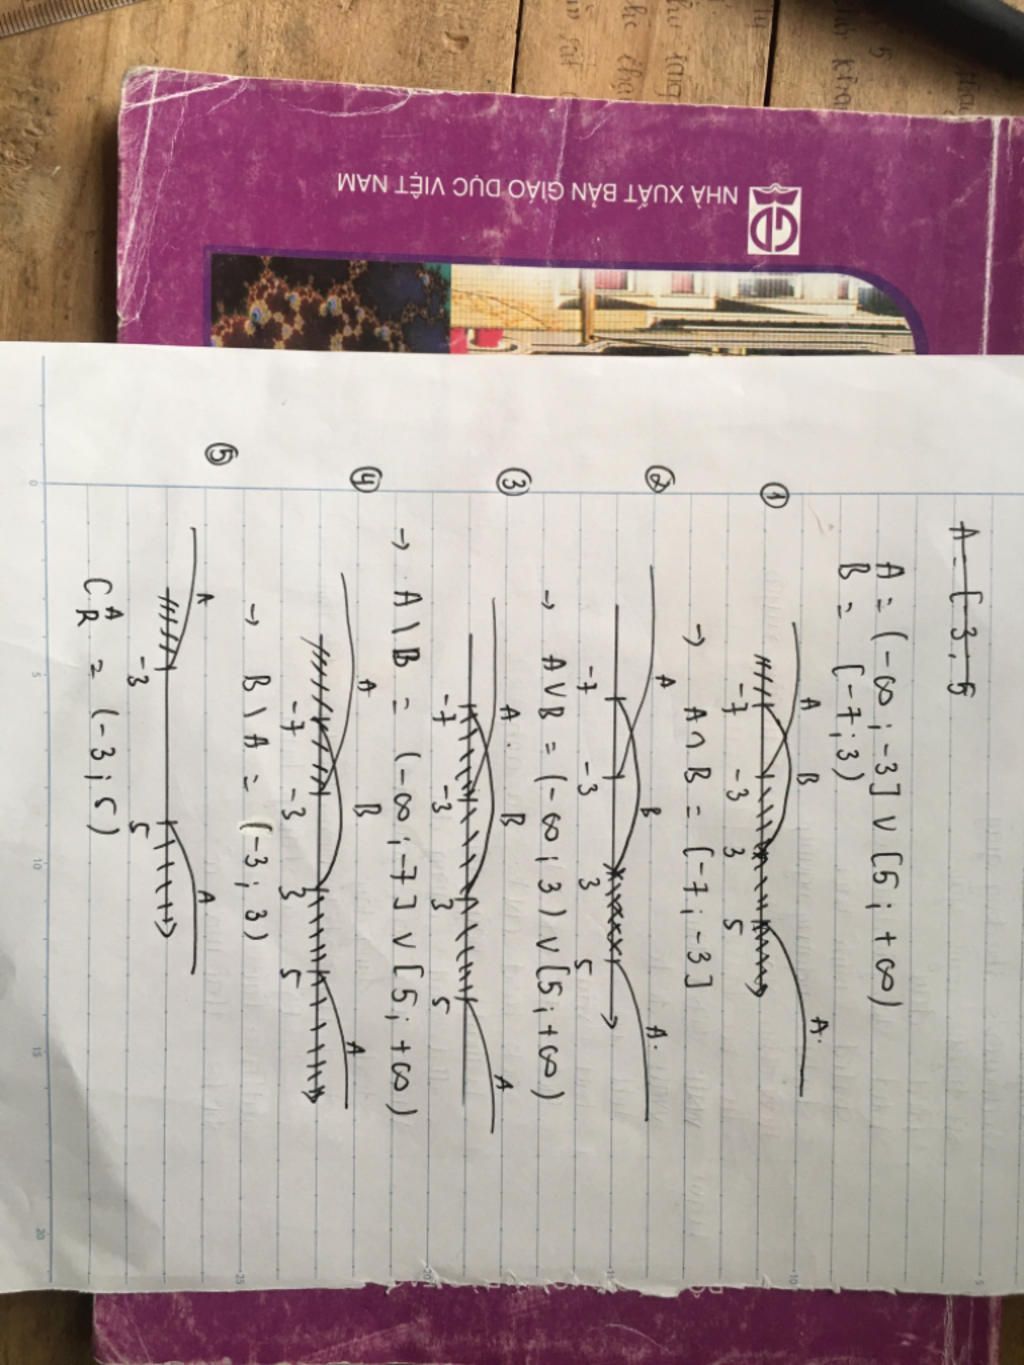 NHÀ XUẤT BẢN GIÁO DỤC VIỆT NAM
A = [-3, 5
A = (-∞ ; -3] ∨ [5 ; +∞)
B = [-7 ; 3)
①
A B A.
-7 -3 3 5
→ A ∩ B = [-7 ; -3]
②
A B A.
-7 -3 3 5
→ A ∨ B = (-∞ ; 3) ∨ [5 ; +∞)
③
A. B A
-7 -3 3 5
→ A \ B = (-∞ ; -7] ∨ [5 ; +∞)
④
A B A
-7 -3 3 5
→ B \ A = (-3 ; 3)
⑤
A A
-3 5
C_R^A = (-3 ; 5)